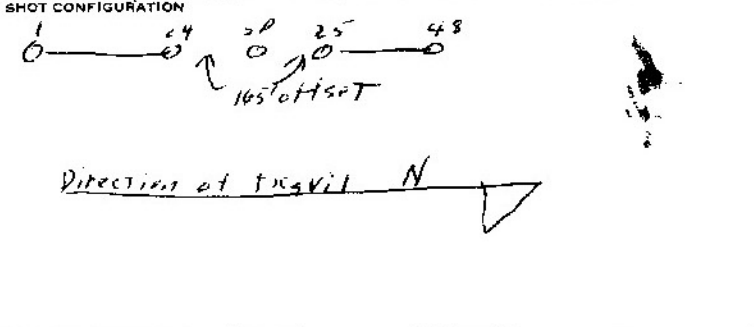 SHOT CONFIGURATION
1 24 SP 25 48
165' offset
Direction of travil N